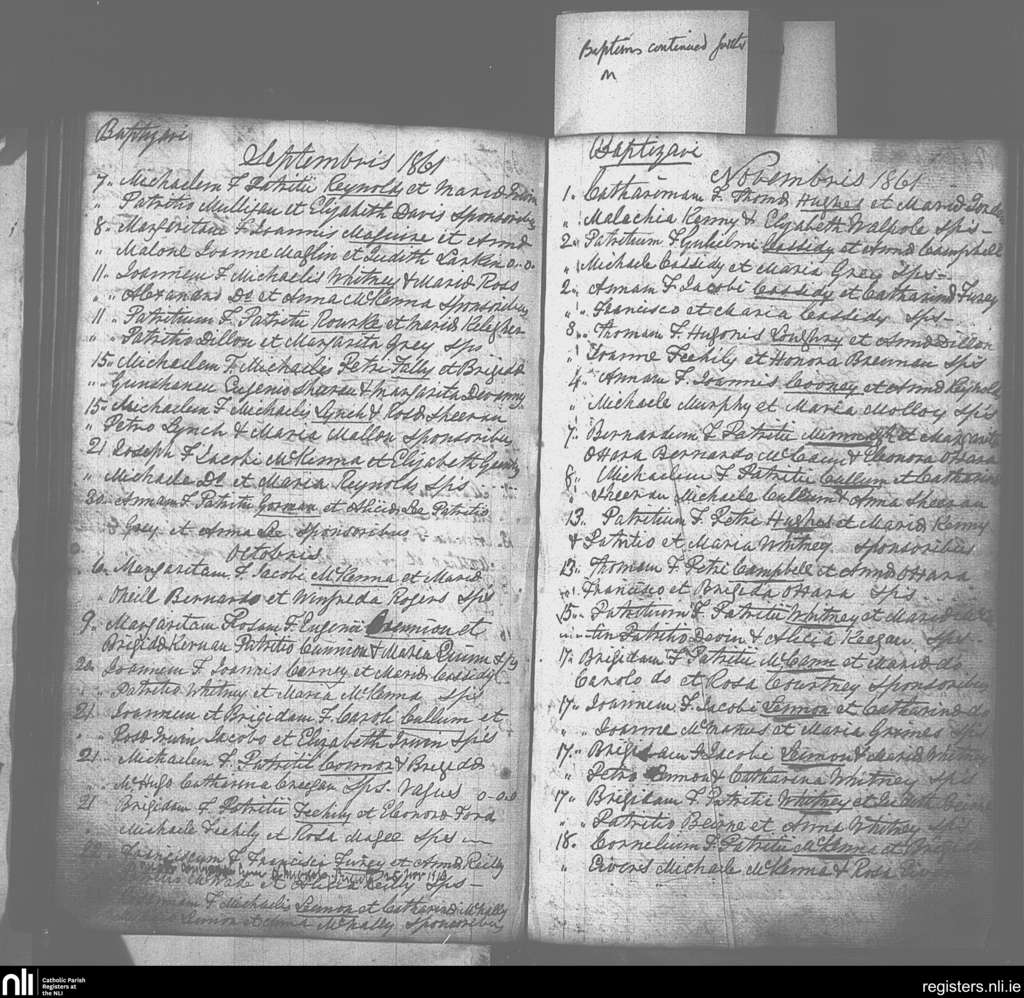 Baptisms continued
Baptizavi
Septembris 1861
7. Michaelem F Patritii Reynolds et Maria
" Patritio Mulligan et Elizabeth Davis Sponsoribus
8. Margaritam F Joannis Maguire et Anna
" Malone Joanne Maglin et Judith Larkin o.o.
11. Joannem F Michaelis Whitney & Maria Ross
" Alexandro Do et Anna McKenna Sponsoribus
11 " Patritium F Patritii Rourke et Maria Kelegher
" Patritio Dillon et Margarita Grey Sps
15. Michaelem F Michaelis Petri Fally et Brigida
" Eugenio Sharan & Margarita Devanny
15. Michaelem F Michaelis Lynch & Rosa Sheeran
" Petro Lynch & Maria Mallon Sponsoribus
21 Joseph F Jacobi McKenna et Elizabeth
" Michaele Do et Maria Reynolds Sps
30. Annam F Patritii Gorman et Alicia Lee Patritio
Grey et Anna Lee Sponsoribus
Octobris
6. Margaritam F Jacobi McKenna et Maria
" ONeill Bernardo et Winfreda Rogers Sps
9. Margaritam Rosam F Eugenii et
Brigida Kernan Patritio Cunnion & Maria Quinn Sps
20. Joannem F Joannis Carney et Maria Cassidy
" Patritio Whitney et Maria McKenna Sps
21 Joannem et Brigidam F Caroli Cullum et
" Rosa Irwin Jacobo et Elizabeth Irwin Sps
21 " Michaelem F Patritii Connon & Brigida
" McHugo Catharina Creegan Sps. Vagues o-o.o
21 Brigidam F Patritii Feehily et Eleonora Ford
" Michaele Feehily et Rosa Magee Sps
Franciscum F Francisci Furey et Anna Reilly
et Alicia Reilly Sps
F Michaelis Lennon et Catharina McNally
Lennon et Anna McNally Sponsoribus
Baptizavi
Novembris 1861
1. Catharinam F Thoma Hughes et Maria
" Malachia Kenny & Elizabeth Walpole Sps
2. Patritium F Gulielmi Cassidy et Anna Campbell
" Michaele Cassidy et Maria Grey Sps
2. Annam F Jacobi Cassidy et Catharina Furey
" Francisco et Maria Cassidy Sps
3. Thomam F Hugonis et Anna Dillon
" Joanne Feehily et Honora Brennan Sps
4. Annam F. Joannis Cooney et Anna Reynolds
" Michaele Murphy et Maria Molloy Sps
7. Bernardum F Patritii et Margarita
OHara Bernardo McCann & Eleonora OHara
8. Michaelem F Patritii Cullum et Catharina
" Sheeran Michaele Cullum & Anna Sheeran
13. Patritium F Petri Hughes et Maria Kenny
& Patritio et Maria Whitney Sponsoribus
13. Thomam F Petri Campbell et Anna OHara
Francisco et Brigida OHara Sps.
15. Patritium F Patritii Whitney et Maria
Patritio Devin & Alicia Keegan Sps
17. Brigidam F Patritii McCann et Maria do
Carolo do et Rosa Courtney Sponsoribus
17. Joannem F Jacobi Lennon et Catharina do
" Joanne McManus et Maria Grimes Sps
17. Brigidam F Jacobi Lennon & Maria Whitney
" Petro Lennon & Catharina Whitney Sps
17. Brigidam F Patritii Whitney et
" Patritio Beirne et Anna Whitney Sps
18. Cornelium F Patritii McKenna et
" Michaele McKenna & Rosa
nli
Catholic Parish
Registers at
the NLI
registers.nli.ie